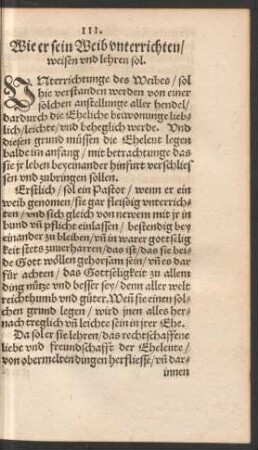 III.
Wie er sein Weib vnterrichten/
weisen vnd lehren sol.
VNterrichtunge des Weibes/ sol
hie verstanden werden von einer
solchen anstellunge aller hendel/
dardurch die Eheliche beywonunge lieb-
lich/ leichte/ vnd beheglich werde. Vnd
diesen grund müssen die Eheleut legen
balde im anfang/ mit betrachtunge das
sie jr leben beyeinander hinfurt verschlies
sen vnd zubringen sollen.
Erstlich/ sol ein Pastor/ wenn er ein
weib genomen/ sie gar fleissig vnterrich-
ten/ vnd sich gleich von newem mit jr in
bund vñ pflicht einlassen/ bestendig bey
einander zu bleiben/ vñ in warer gottselig
keit stets zuuerharren/ das ist/ das sie bei-
de Gott wöllen gehorsam sein/ vñ es dar
für achten/ das Gottseligkeit zu allem
ding nütze vnd besser sey/ denn aller welt
reichthumb vnd güter. Weñ sie einen sol-
chen grund legen/ wird jnen alles her-
nach treglich vñ leichte sein in jrer Ehe.
Da sol er sie lehren/ das rechtschaffene
liebe vnd freundschafft der Eheleute/
von obermelten dingen herfliesse/ vñ dar-
innen